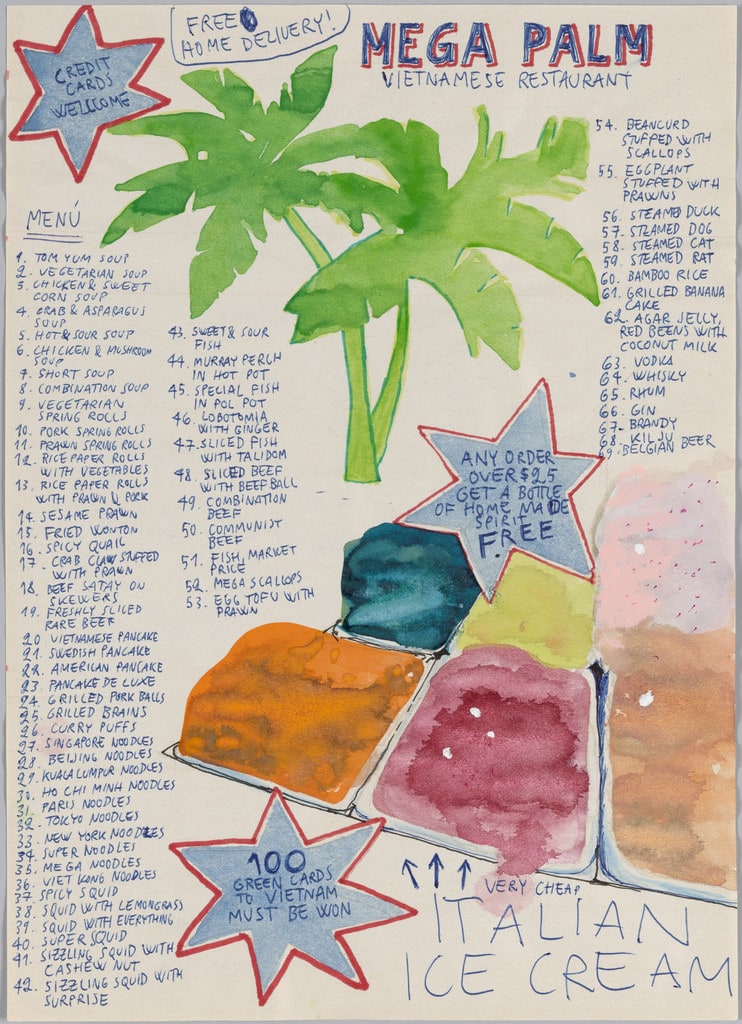 CREDIT
CARDS
WELLCOME
FREE
HOME DELIVERY!
MEGA PALM
VIETNAMESE RESTAURANT
MENÚ
1. TOM YUM SOUP
2. VEGETARIAN SOUP
3. CHICKEN & SWEET
CORN SOUP
4. CRAB & ASPARAGUS
SOUP
5. HOT & SOUR SOUP
6. CHICKEN & MUSHROOM
SOUP
7. SHORT SOUP
8. COMBINATION SOUP
9. VEGETARIAN
SPRING ROLLS
10. PORK SPRING ROLLS
11. PRAWN SPRING ROLLS
12. RICE PAPER ROLLS
WITH VEGETABLES
13. RICE PAPER ROLLS
WITH PRAWN & PORK
14. SESAME PRAWN
15. FRIED WONTON
16. SPICY QUAIL
17. CRAB CLAW STUFFED
WITH PRAWN
18. BEEF SATAY ON
SKEWERS
19. FRESHLY SLICED
RARE BEEF
20. VIETNAMESE PANCAKE
21. SWEDISH PANCAKE
22. AMERICAN PANCAKE
23. PANCAKE DE LUXE
24. GRILLED PORK BALLS
25. GRILLED BRAINS
26. CURRY PUFFS
27. SINGAPORE NOODLES
28. BEIJING NOODLES
29. KUALA LUMPUR NOODLES
30. HO CHI MINH NOODLES
31. PARIS NOODLES
32. TOKYO NOODLES
33. NEW YORK NOODLES
34. SUPER NOODLES
35. MEGA NOODLES
36. VIET KONG NOODLES
37. SPICY SQUID
38. SQUID WITH LEMONGRASS
39. SQUID WITH EVERYTHING
40. SUPER SQUID
41. SIZZLING SQUID WITH
CASHEW NUT
42. SIZZLING SQUID WITH
SURPRISE
43. SWEET & SOUR
FISH
44. MURRAY PERCH
IN HOT POT
45. SPECIAL FISH
IN POL POT
46. LOBOTOMIA
WITH GINGER
47. SLICED FISH
WITH TALIDOM
48. SLICED BEEF
WITH BEEF BALL
49. COMBINATION
BEEF
50. COMMUNIST
BEEF
51. FISH, MARKET
PRICE
52. MEGA SCALLOPS
53. EGG TOFU WITH
PRAWN
54. BEANCURD
STUFFED WITH
SCALLOPS
55. EGGPLANT
STUFFED WITH
PRAWNS
56. STEAMED DUCK
57. STEAMED DOG
58. STEAMED CAT
59. STEAMED RAT
60. BAMBOO RICE
61. GRILLED BANANA
CAKE
62. AGAR JELLY,
RED BEENS WITH
COCONUT MILK
63. VODKA
64. WHISKY
65. RHUM
66. GIN
67. BRANDY
68. KILJU
69. BELGIAN BEER
ANY ORDER
OVER $25
GET A BOTTLE
OF HOME MADE
SPIRIT
FREE
100
GREEN CARDS
TO VIETNAM
MUST BE WON
VERY CHEAP
ITALIAN
ICE CREAM